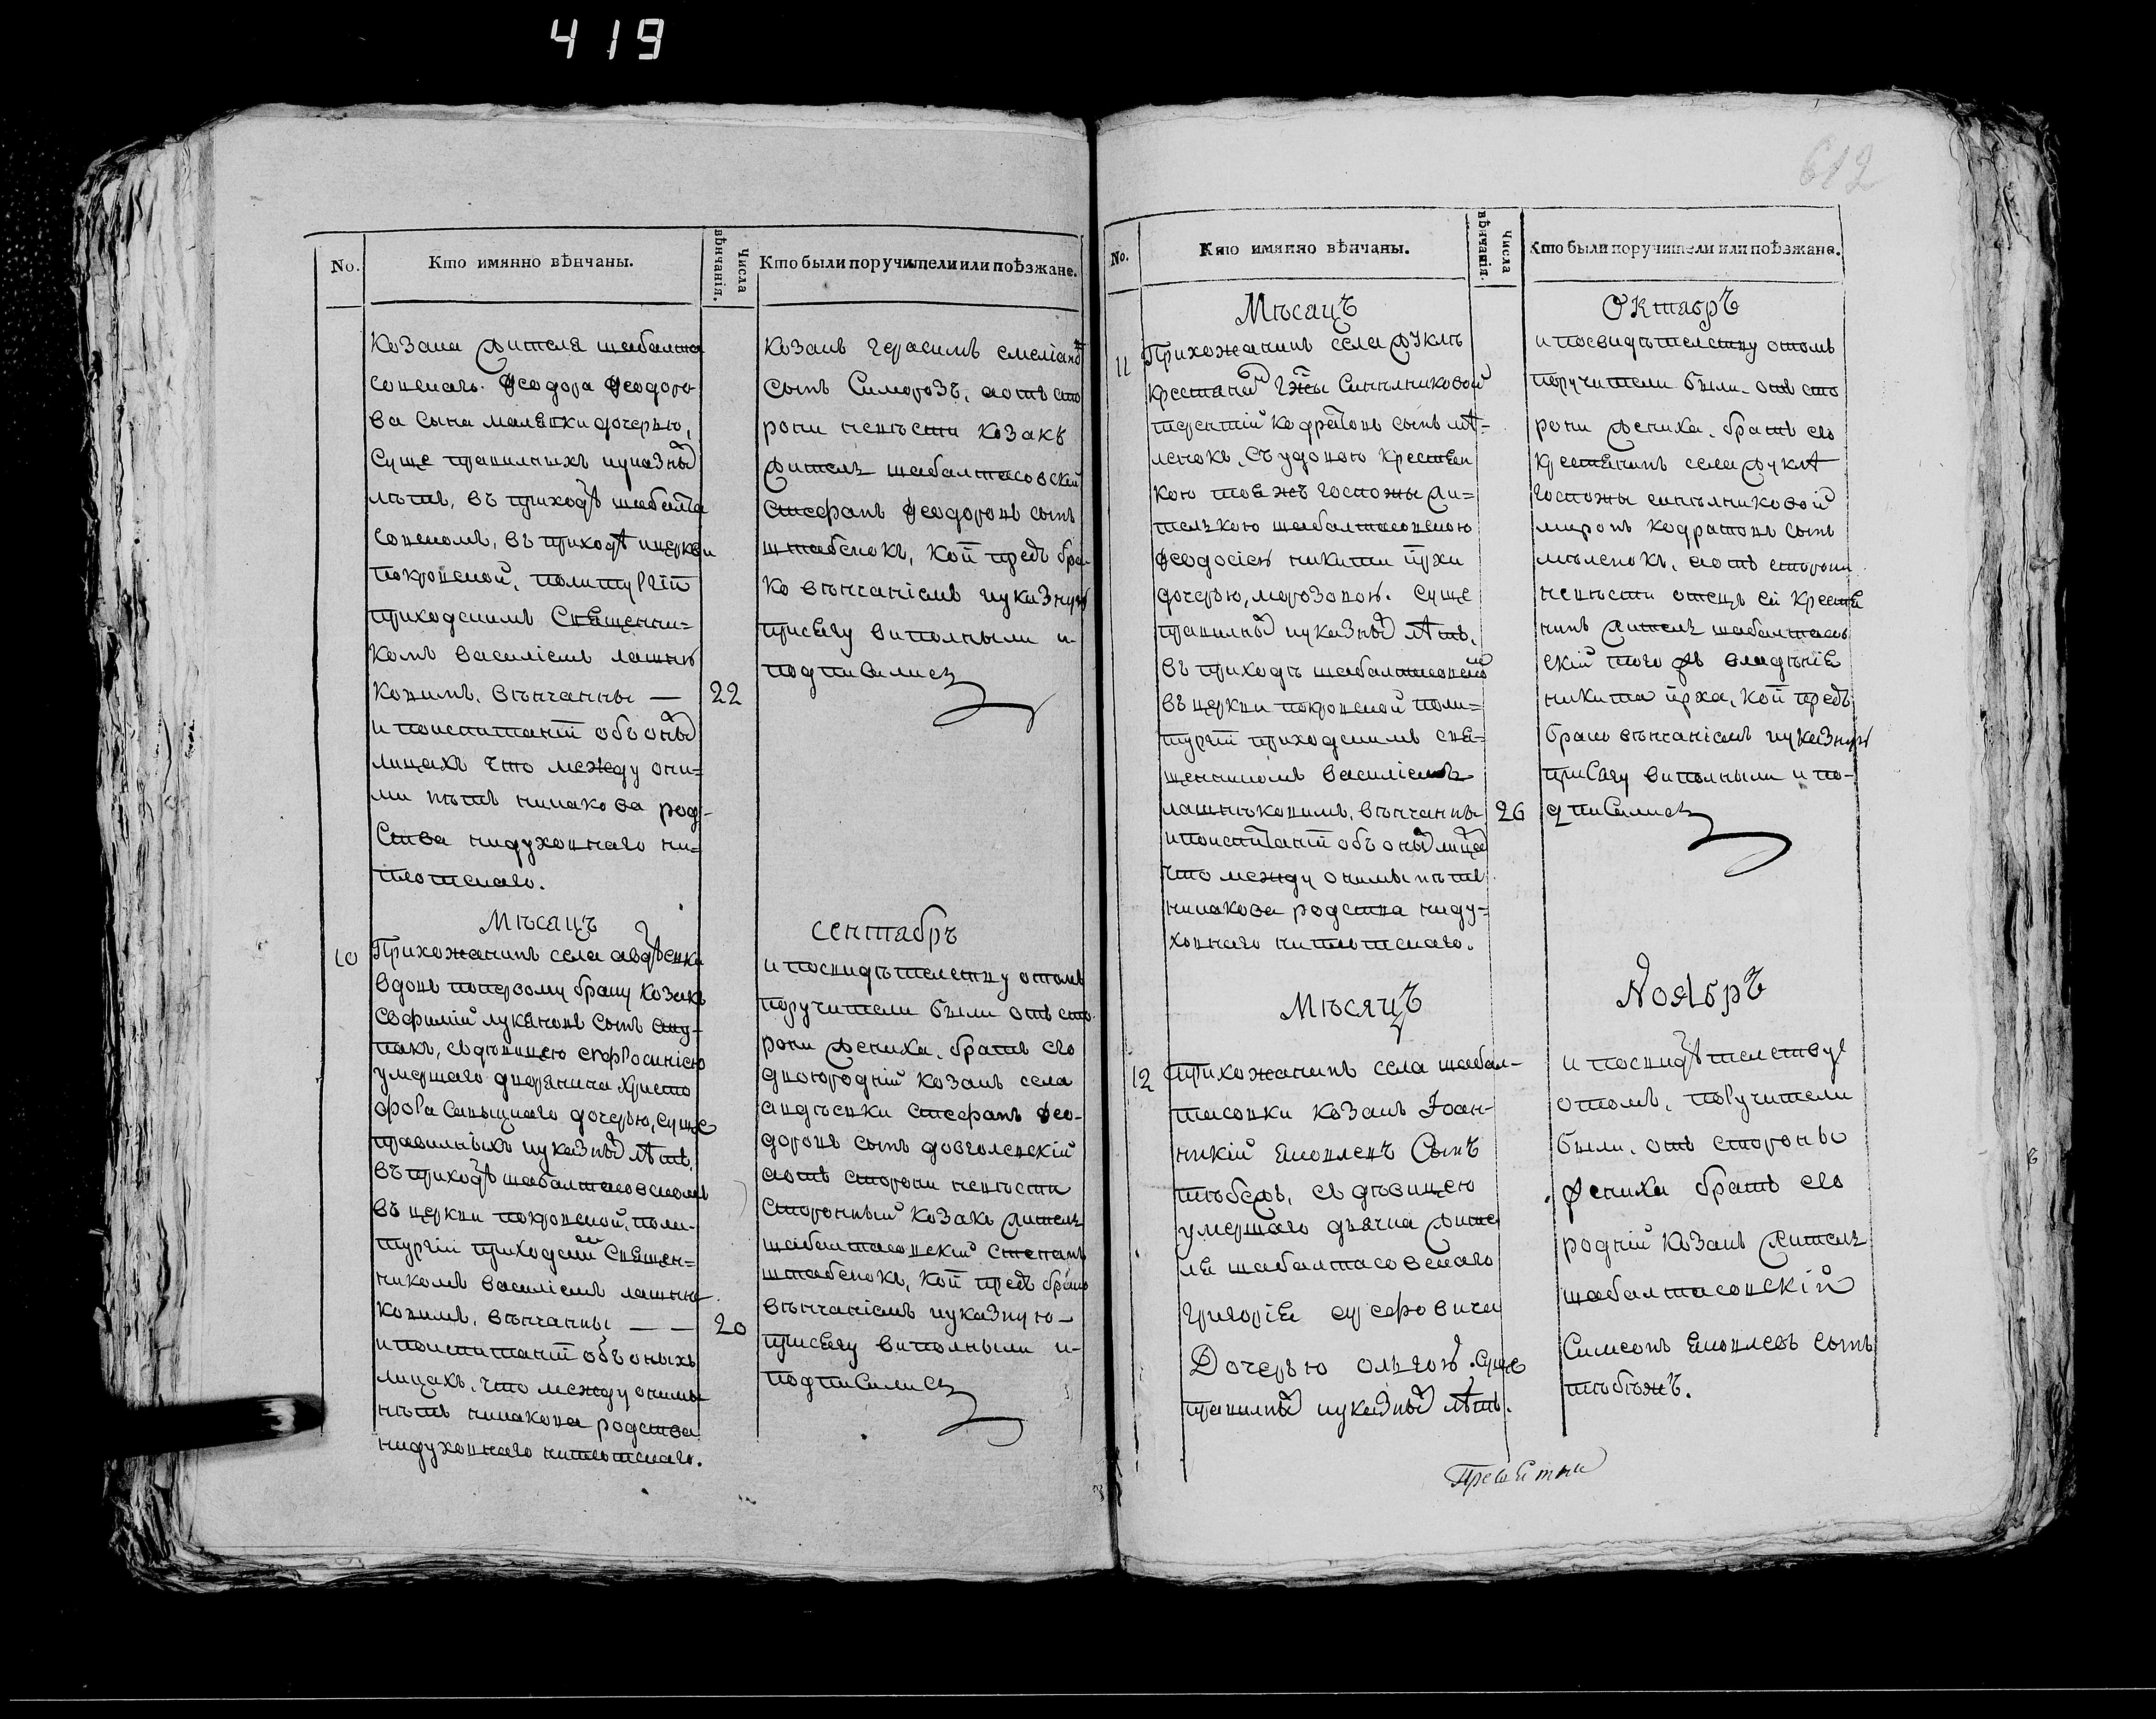 419
612
No.
Кто имянно вѣнчаны.
Числа вѣнчанія.
Кто были поручители или поѣзжане.
козака жителя шабалта
совскагь Феодора Феодоро
ва сына дочерью,
суще правилныхъ иуказных
лѣтъ, въ приходѣ шабалта
совскомъ, въ приходѣ ицеркви
покровской, политургіи
приходскимъ Священни=
комъ василіемъ лашнѣ
ковимъ, вѣнчанны — 22
и поиспитаніи объ оных
лицахъ что между они=
ми нѣтъ никакова род-
ства нидуховнаго ни=
плотскаго.
козакъ герасимъ емеліановъ
сынъ Симорозъ, аотъ сто
рони невѣсти козакъ
житель шабалтасовскій
стефанъ Феодоровъ сынъ
кои предъ бра-
ко вѣнчаніемъ иуказную
присягу виполныли и-
подписались
Мѣсяцъ
сентабръ
10 Прихожанинъ села авдѣевки
вдовъ попервому браку козакъ
евфимій лукяновъ сынъ
съдѣвицею евфросиніею
умершаго дворянина христо
фора дочерью, суще
правилныхъ иуказных лѣтъ,
въ приходѣ шабалтасовскомъ
въ церкви покровской, поли-
тургіи приходским Священ=
никомъ василіемъ лашнѣ
ковимъ, вѣнчанны — — 20
и поиспитаніи объ оныхъ
лицахъ, что между онимы
нѣтъ никакова родства
нидуховнаго ниплотскаго.
и посвидѣтелству отомъ
поручители были отъ сто-
рони жениха, братъ его
двоюродній козакъ села
авдѣевки стефанъ Фео-
доровъ сынъ довголевскій
аотъ сторони невѣсти
сторонный козакъ житель
шабалтасовскій стефанъ
кои предъ брако
вѣнчаніемъ иуказную-
присягу виполныли и-
подписались
No.
Кто имянно вѣнчаны.
Числа вѣнчанія.
Кто были поручители или поѣзжане.
Мѣсацъ
Октабръ
11 Прихожанинъ села
крестянин гжы Синѣлниковой
терентій кодратовъ сынъ мѣ-
ленокъ, съ удовою крестян
кою тоя жъ госпожы жи=
телькою шабалтасовскою
феодосією никити
дочерью, морозовою. суще
правилных иуказных лѣтъ,
въ приходѣ шабалтасовском
въ церкви покровской поли=
тургіи приходскимъ свя-
щенникомъ василіемъ
лашнѣковимъ, вѣнчанны 26
и поиспитаніи объ оных лицах
что между онимы нѣтъ
никакова родства ниду-
ховнаго ниплотскаго.
и посвидѣтелству отомъ
поручители были отъ сто
рони жениха, братъ его
крестянинъ села
госпожы синѣлниковой
миронъ кодратовъ сынъ
мѣленокъ, аотъ сторони
невѣсти отецъ ей крестя
нинъ житель шабалтасов
скій того жъ владѣнія
никита кои предъ
брако вѣнчаніемъ иуказную
присагу виполныли и по-
дписались
Мѣсяцъ
Ноябръ
12 прихожанинъ села шабал-
тасовки козакъ Іоан-
никій яковлевъ Сынъ
съ дѣвицею
умершаго дьячка жите
ля шабалтасовскаго
григорія
Дочерью олѣгою. суще
правилных иуказных лѣтъ.
и посвидѣтелству
отомъ, поручители
были, отъ стороны
жениха братъ его
родній козакъ житель
шабалтасовскій
Симеонъ яковлевъ сынъ